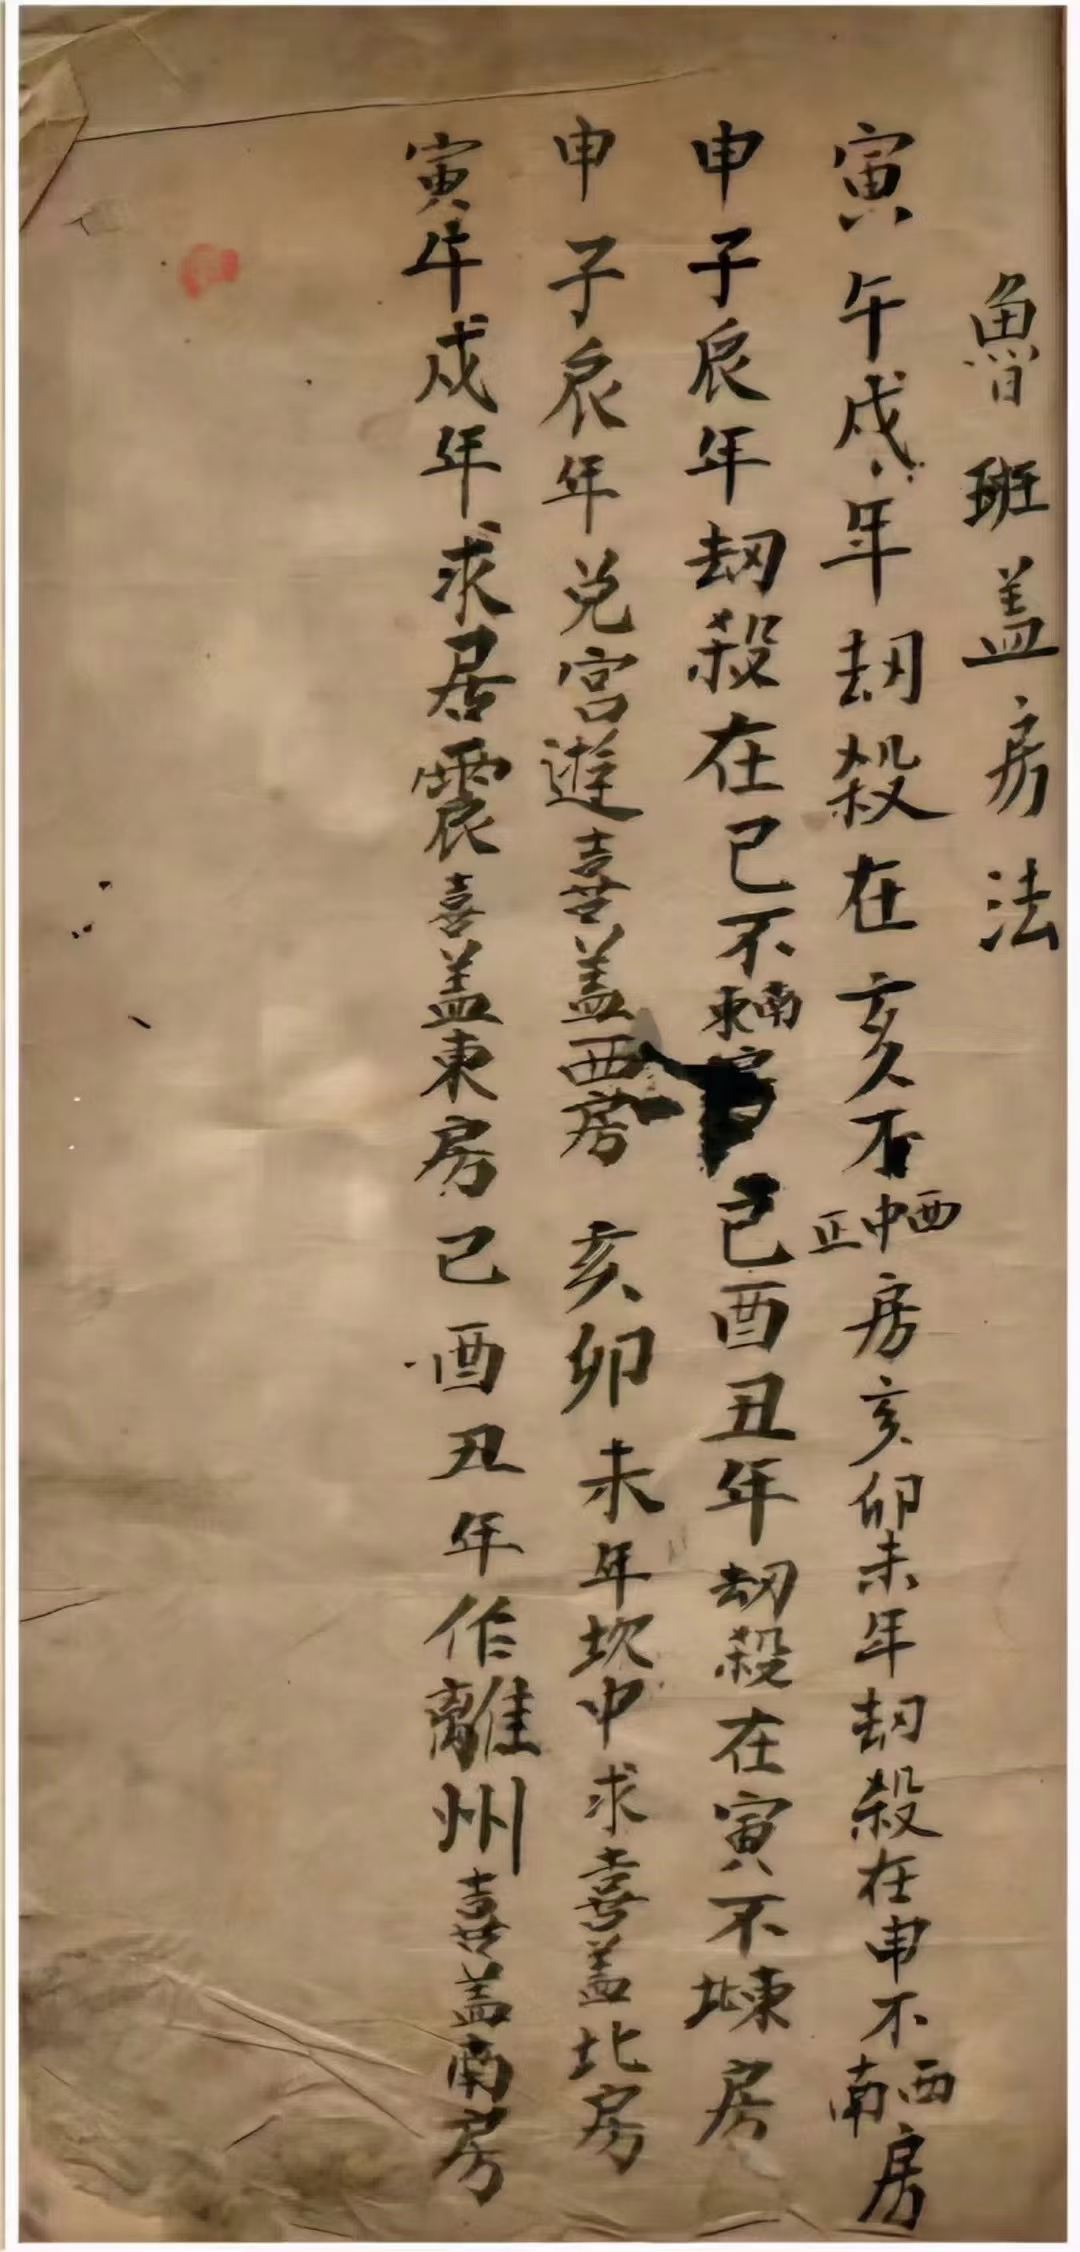 魯班盖房法
寅午戌年刼殺在亥不西中正房亥卯未年刼殺在申不西南房
申子辰年刼殺在已不南東房已酉丑年刼殺在寅不東北房
申子辰年兑宫遊喜盖西房亥卯未年坎中求喜盖北房
寅午戌年求居震喜盖東房已酉丑年作離州喜盖南房